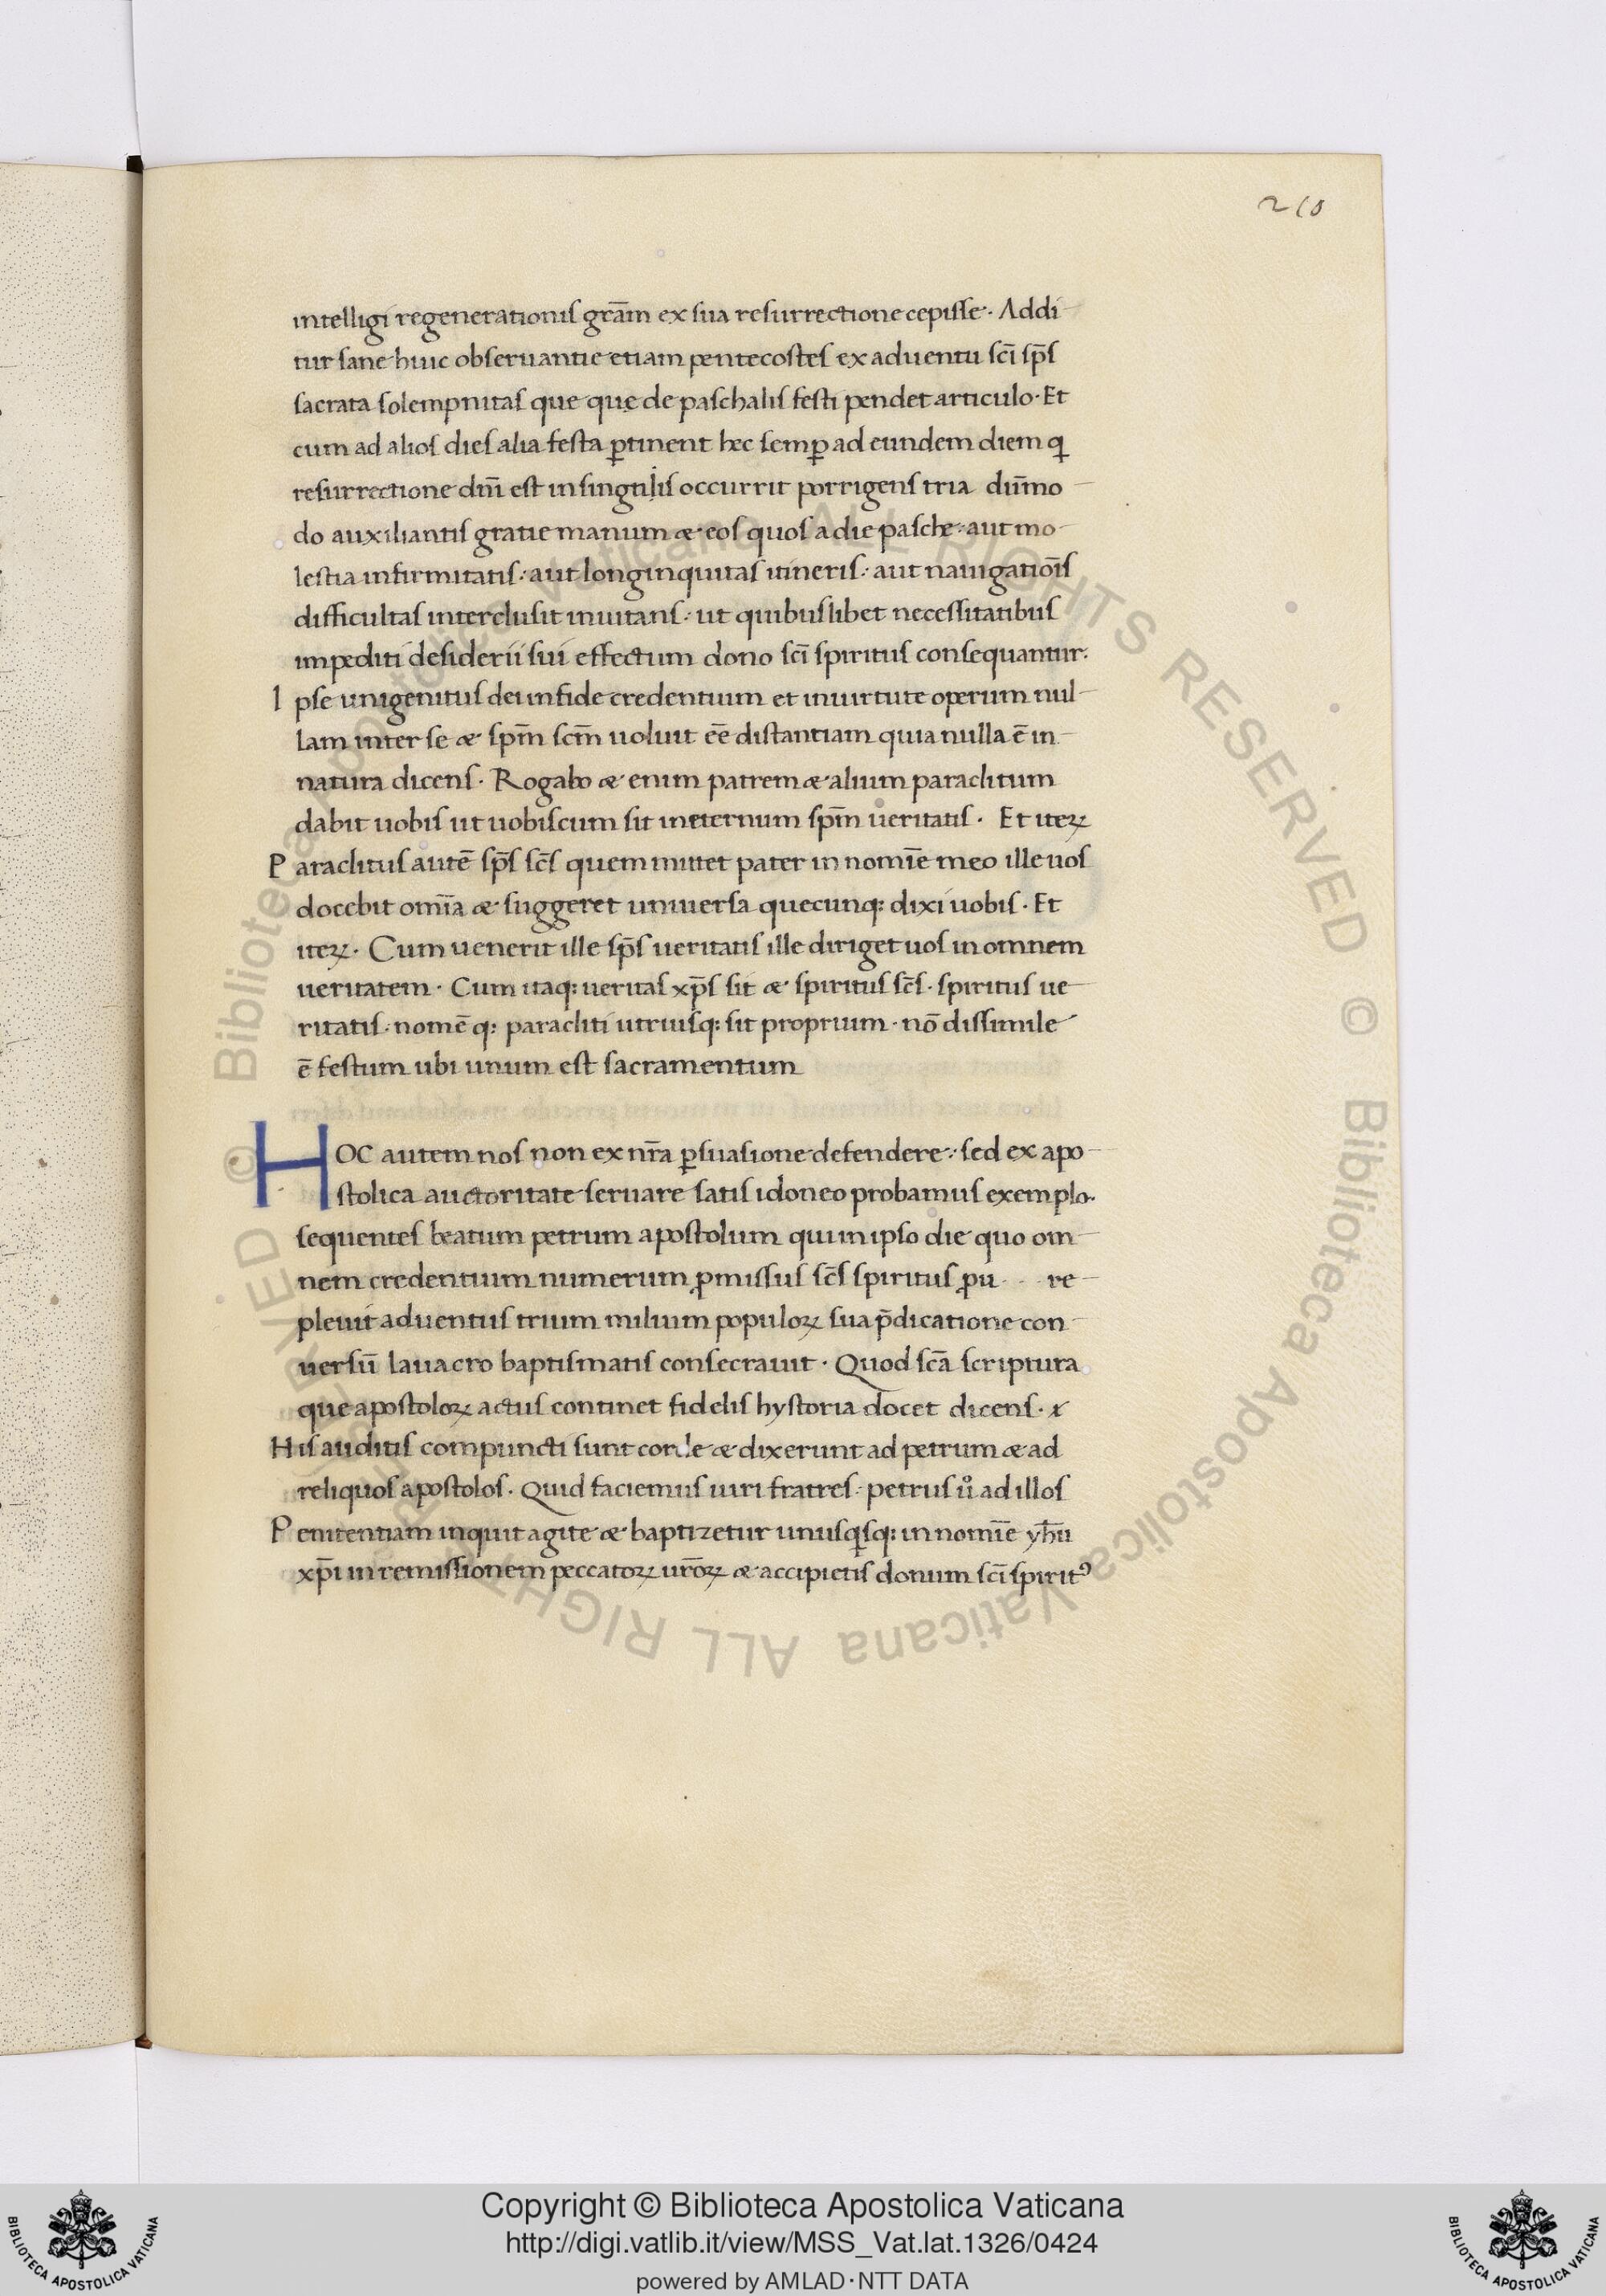 210
intelligi regenerationis gr̄am ex sua resurrectione cepisse · Addi
tur sane huic obseruantie etiam pentecostes ex aduentu sc̄i sp̄s
sacrata solempnitas que que de paschalis festi pendet articulo · Et
cum ad alios dies alia festa ꝑtinent hec semꝑ ad eundem diem q
resurrectione dn̄i est insingulis occurrit porrigens tria dum̄o
do auxiliantis gratie manum & eos quos a die pasche · aut mo
lestia infirmitatis · aut longinquitas itineris · aut nauigatiōis
difficultas interclusit inuitans · ut quibuslibet necessitatibus
impediti desiderii sui effectum dono sc̄i spiritus consequantur ·
Ipse unigenitus dei infide credentium et inuirtute operum nul
lam inter se & sp̄m sc̄m uoluit ēe distantiam quia nulla ē in
natura dicens · Rogabo & enim patrem & alium paraclitum
dabit uobis ut uobiscum sit ineternum sp̄m ueritatis · Et iteꝝ
Paraclitus autē sp̄s sc̄s quem mittet pater in nomīe meo ille uos
docebit omīa & suggeret uniuersa quecunq: dixi uobis · Et
iteꝝ · Cum uenerit ille sp̄s ueritatis ille diriget uos in omnem
ueritatem · Cum itaq: ueritas xp̄s sit & spiritus sc̄s · spiritus ue
ritatis · nomē q: paracliti utriusq: sit proprium · nō dissimile
ē festum ubi unum est sacramentum
HOC autem nos non ex nr̄a ꝑsuasione defendere · sed ex apo
stolica auctoritate seruare satis idoneo probamus exemplo ·
sequentes beatum petrum apostolum qui in ipso die quo om
nem credentium numerum ꝓmissus sc̄s spiritus re
pleuit aduentus trium milium populoꝝ sua p̄dicatione con
uersū lauacro baptismatis consecrauit · Quod sc̄a scriptura
que apostoloꝝ actus continet fidelis hystoria docet dicens ·
His auditis compuncti sunt corde & dixerunt ad petrum & ad
reliquos apostolos · Quid faciemus uiri fratres · petrus uͦ ad illos
Penitentiam inquit agite & baptizetur unusqsq: in nomīe yhū
xp̄i in remissionem peccatoꝝ ur̄oꝝ & accipietis donum sc̄i spiritꝰ
© Biblioteca Apostolica Vaticana ALL RIGHTS RESERVED © Biblioteca Apostolica Vaticana ALL RIGHTS RESERVED
Copyright © Biblioteca Apostolica Vaticana
http://digi.vatlib.it/view/MSS_Vat.lat.1326/0424
powered by AMLAD·NTT DATA
BIBLIOTECA APOSTOLICA VATICANA
BIBLIOTECA APOSTOLICA VATICANA